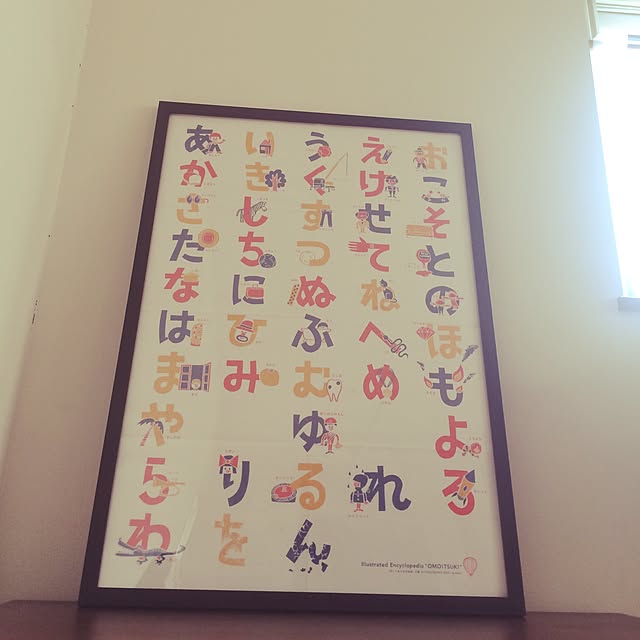 あいうえお
かきくけこ
さしすせそ
たちつてと
なにぬねの
はひふへほ
まみむめも
やゆよ
らりるれろ
わをん
Illustrated Encyclopedia "OMOITSUKI"